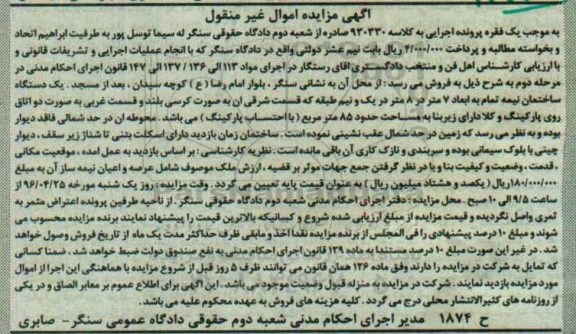 آگهی مزایده اموال غیر منقول
به موجب یک فقره پرونده اجرایی به کلاسه ۹۳۰۳۳۰ صادره از شعبه دوم دادگاه حقوقی سنگر له سیما توسل پور به طرفیت ابراهیم اتحاد
و بخواسته مطالبه و پرداخت ۴/۰۰۰/۰۰۰ ریال بابت نیم عشر دولتی واقع در دادگاه سنگر که با انجام عملیات اجرایی و تشریفات قانونی و
با ارزیابی کارشناس اهل فن و منتخب دادگستری اقای رستگار در اجرای مواد ۱۱۳ الی ۱۳۶ / ۱۳۷ الی ۱۴۷ قانون اجرای احکام مدنی در
مرحله دوم به شرح ذیل به فروش می رسد : از محل آن به نشانی سنگر ، بلوار امام رضا ( ع ) کوچه سیدان ، بعد از مسجد . یک دستگاه
ساختمان نیمه تمام به ابعاد ۷ متر در ۸ متر در یک و نیم طبقه که قسمت شرقی ان به صورت کرسی بلند و قسمت غربی به صورت دو اتاق
روی پارکینگ و کلا دارای زیربنا به مساحت حدود ۸۵ متر مربع ( با احتساب پارکینگ ) می باشد . محوطه ان در حد شمالی فاقد دیوار
بوده و به نظر می رسد که زمین در حد شمال عقب نشینی نموده است . ساختمان زمان بازدید دارای اسکلت بتنی تا شناژ زیر سقف ، دیوار
چینی با بلوک سیمانی بوده و سربندی و نازک کاری آن باقی مانده است . نظریه کارشناسی : بر اساس بازدید به عمل امده ، موقعیت مکانی
، قدمت ، وضعیت و کیفیت بنا و با در نظر گرفتن جمع جهات موثر بر قضیه ، ارزش ملک موصوف شامل عرصه و اعیان نیمه ساز آن به مبلغ
۱۸۰/۰۰۰/۰۰۰ ریال ( یکصد و هشتاد میلیون ریال ) به عنوان قیمت پایه تعیین می گردد . وقت مزایده : روز یک شنبه مورخه ۹۶/۰۴/۲۵ از
ساعت ۹/۵ الی ۱۰ صبح . محل مزایده : دفتر اجرای احکام مدنی شعبه دوم دادگاه حقوقی سنگر . از ناحیه طرفین پرونده اعتراض مثمر به
ثمری واصل نگردیده و قیمت مزایده از مبلغ ارزیابی شده شروع و کسانیکه بالاترین قیمت را پیشنهاد نمایند برنده مزایده محسوب می
شوند و مبلغ ۱۰ درصد پیشنهادی را فی المجلس از برنده مزایده نقدا اخذ و مابقی ظرف حداکثر مدت یک ماه از تاریخ فروش وصول خواهد
شد . در غیر این صورت مبلغ ۱۰ درصد مستندا به ماده ۱۲۹ قانون اجرای احکام مدنی به نفع صندوق دولت ضبط خواهد شد . ضمنا کسانی
که تمایل به شرکت در مزایده را دارند وفق ماده ۱۲۶ همان قانون می توانند ظرف ۵ روز قبل از شروع مزایده با هماهنگی این اجرا از اموال
مورد مزایده بازدید نمایند . شرکت در مزایده به منزله قبول وضعیت موجود می باشد . این آگهی برای اطلاع عموم بر معابر الصاق و در یکی
از روزنامه های کثیرالانتشار محلی درج می گردد . کلیه هزینه های فروش به عهده محکوم علیه می باشد .
ح ۱۸۷۴ مدیر اجرای احکام مدنی شعبه دوم حقوقی دادگاه عمومی سنگر- صابری